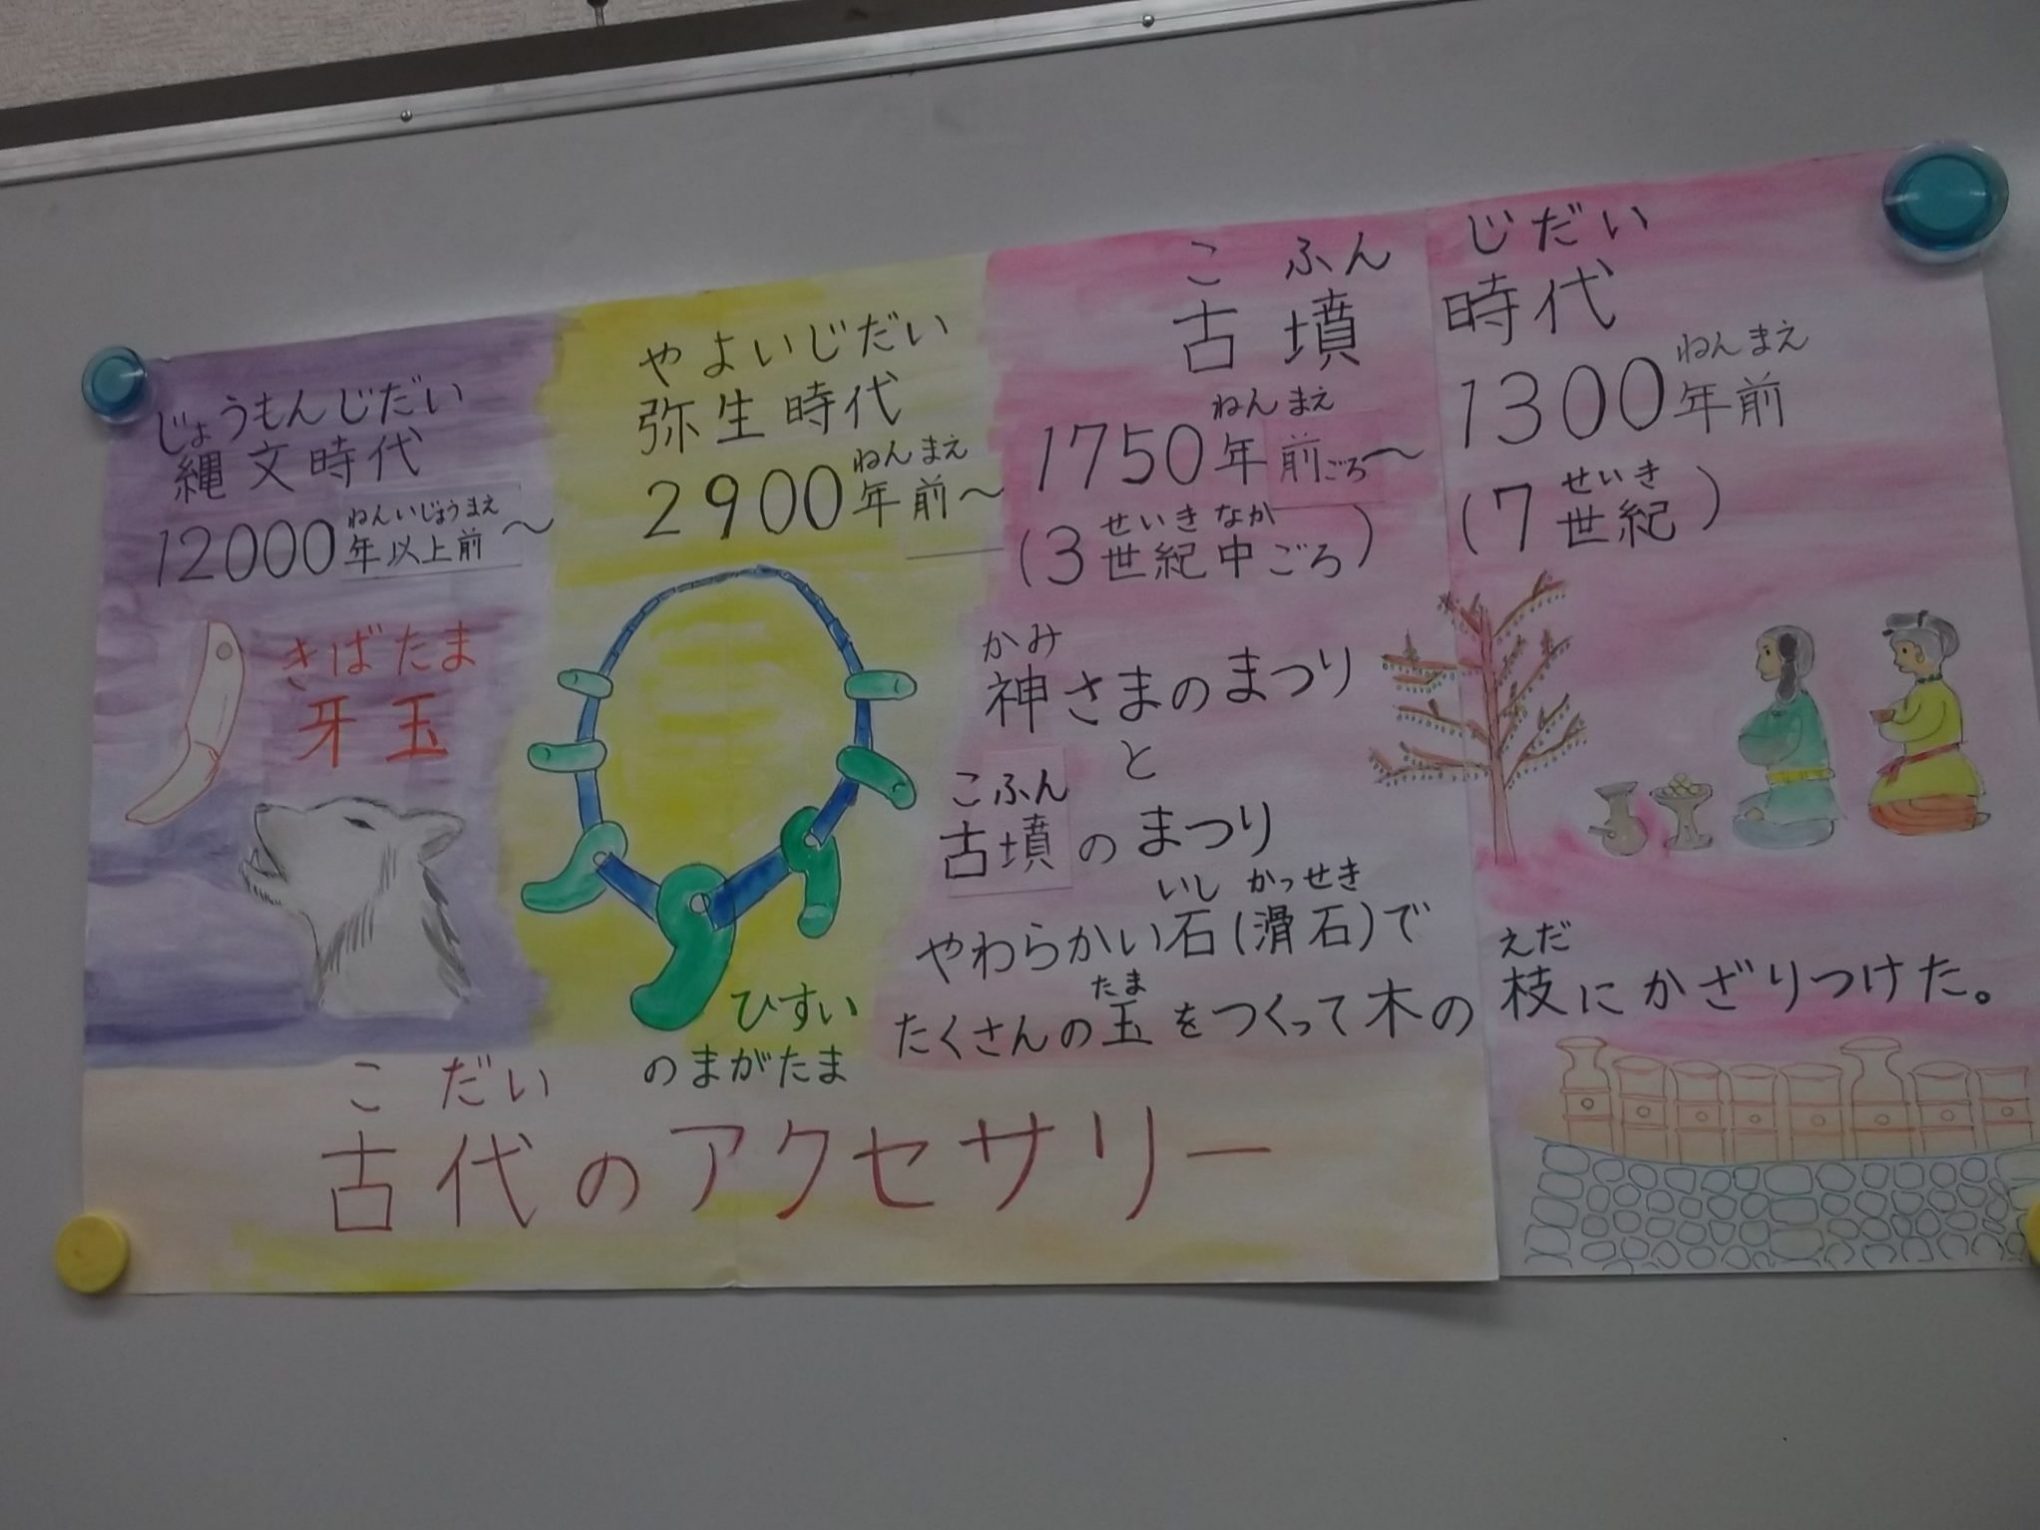 じょうもんじだい
縄文時代
ねんいじょうまえ
12000年以上前～
きばたま
牙玉
やよいじだい
弥生時代
ねんまえ
2900年前～
ひすい
のまがたま
こふん じだい
古墳時代
ねんまえ ねんまえ
1750年前ごろ～1300年前
せいきなか せいき
(3世紀中ごろ) (7世紀)
かみ
神さまのまつり
と
こふん
古墳のまつり
いし かっせき
やわらかい石(滑石)で
たま えだ
たくさんの玉をつくって木の枝にかざりつけた。
こだい
古代のアクセサリー